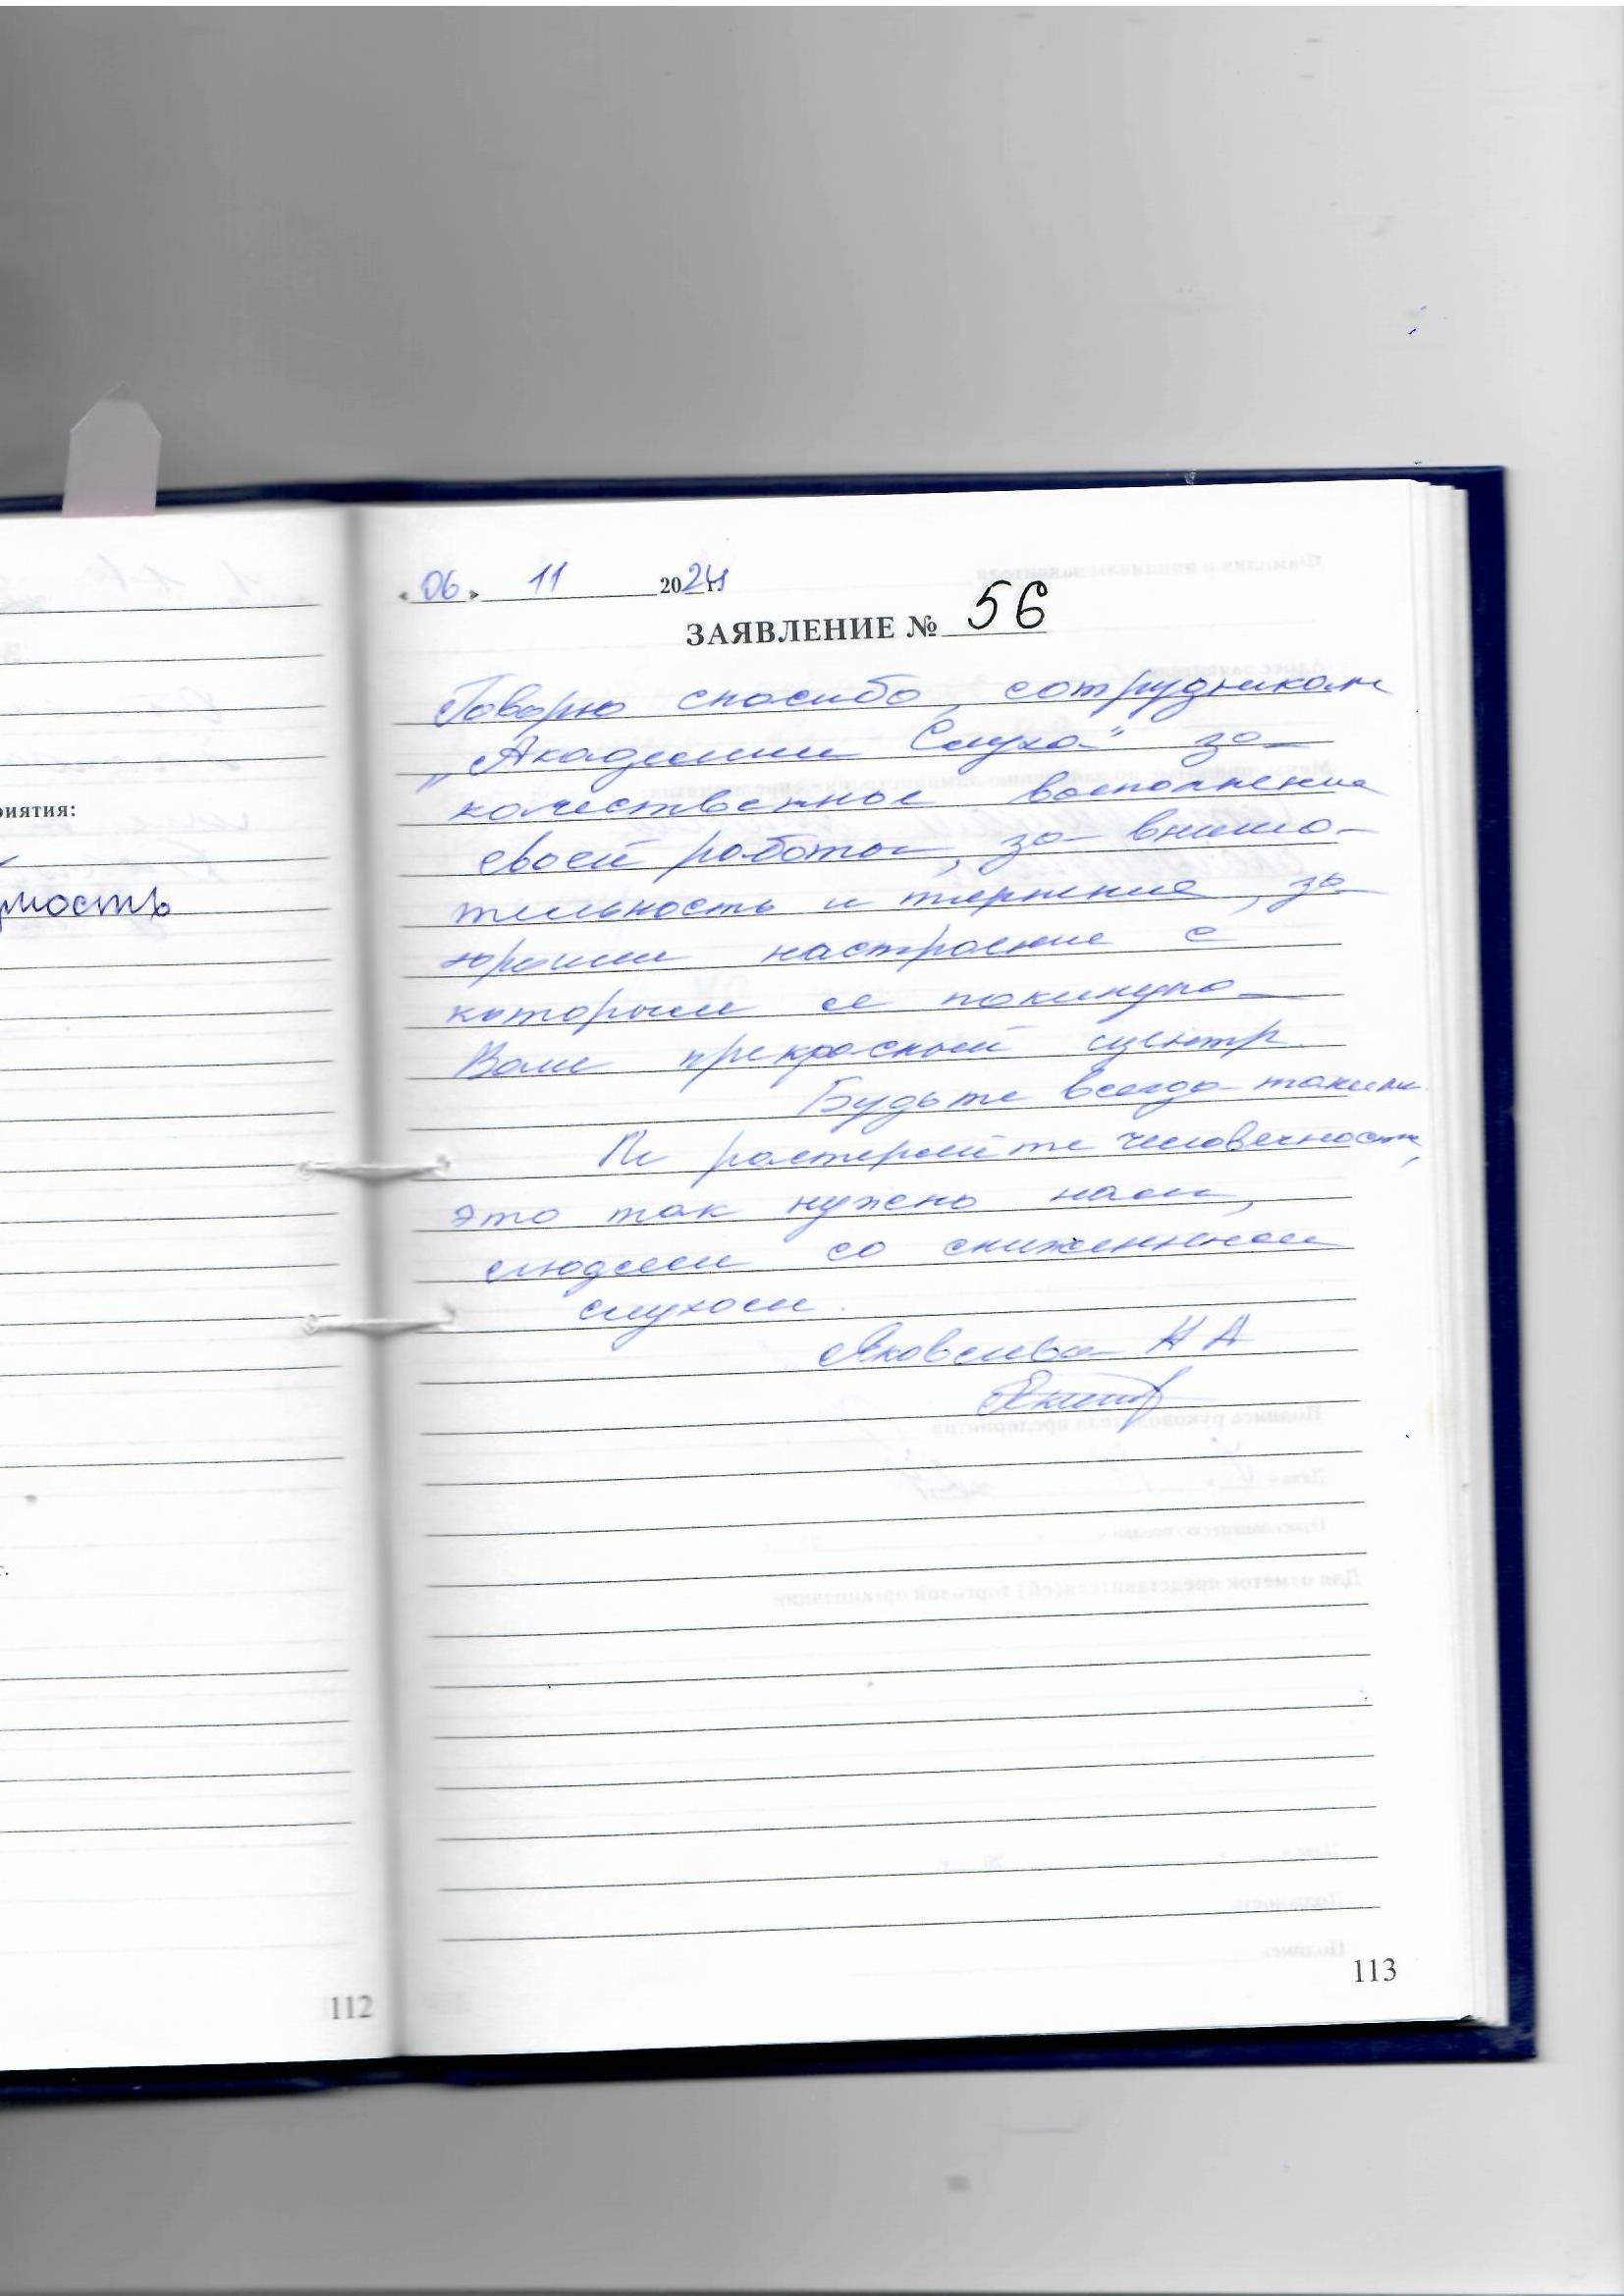 риятия:
рмость
112
« 06 » 11 2024
ЗАЯВЛЕНИЕ № 56
Говорю спасибо сотрудникам
„Академии Слуха" за
качественное выполнение
своей работы, за внима-
тельность и терпение, за
настроение с
которым я покинула
Ваш прекрасный центр.
Будьте всегда такими.
Не растеряйте человечность,
это так нужно нам,
людям со сниженным
слухом.
Яковлева Н А
113